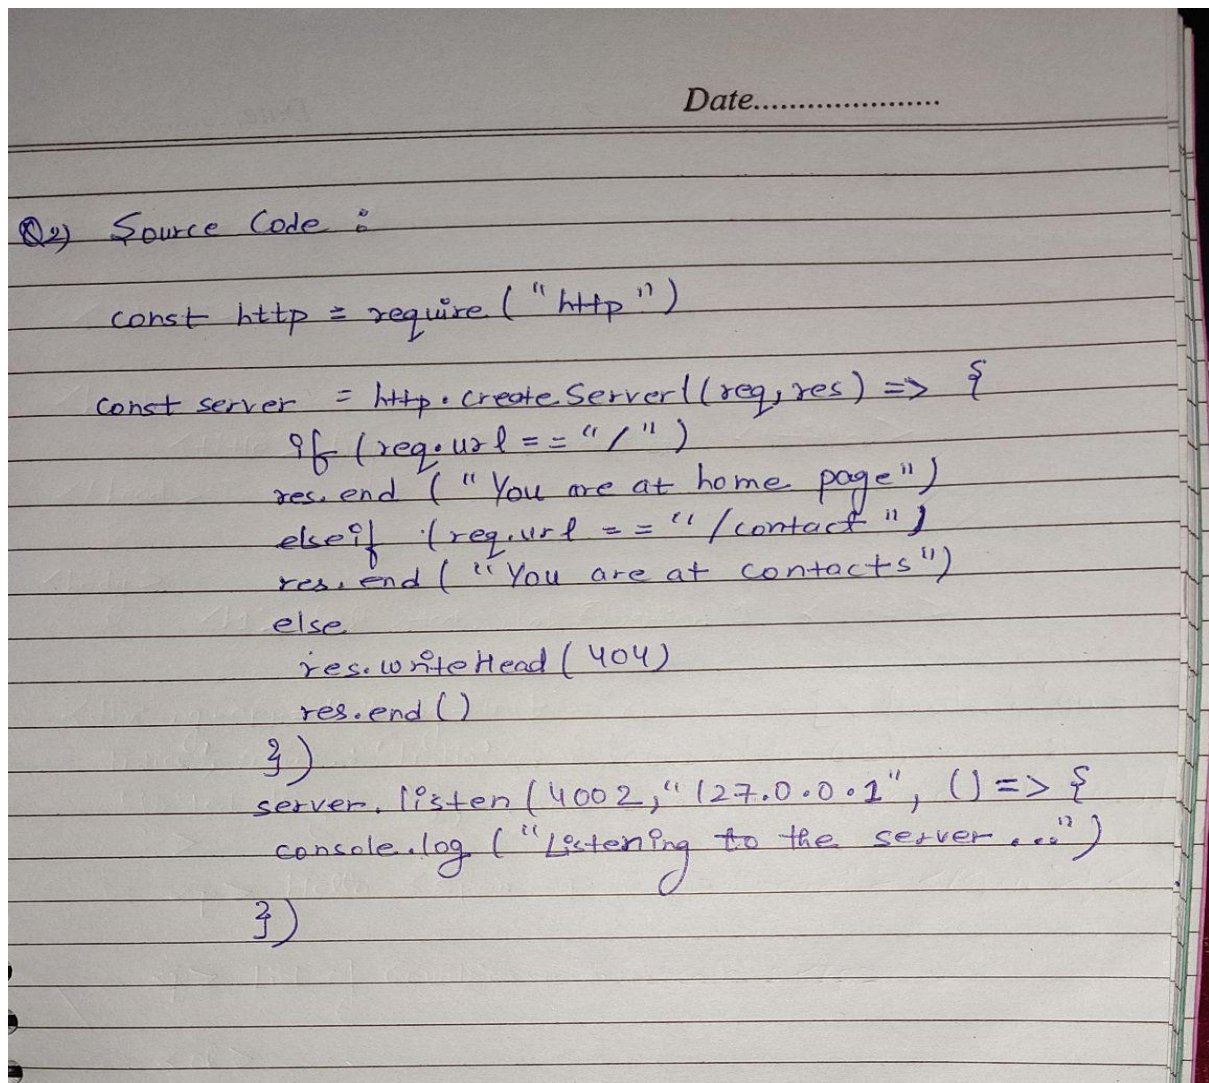 Date......................
Q2) Source Code :
const http = require ("http")
const server = http.createServer((req, res) => {
if (req.url == "/")
res.end ("You are at home page")
elseif (req.url == "/contact")
res.end ("You are at contacts")
else
res.writeHead (404)
res.end ()
})
server.listen (4002, "127.0.0.1", () => {
console.log ("Listening to the server ...")
})